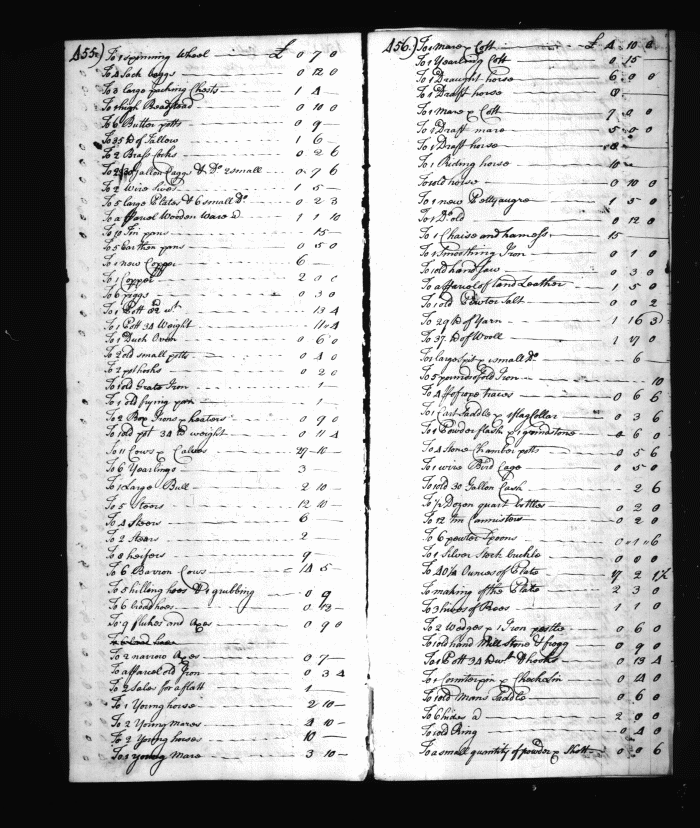 455) To 1 spinning Wheel £ 0 7 0
To 4 Sack baggs 0 12 0
To 3 large packing Chests 1 4 —
To 1 high Beadstead 0 10 0
To 6 Butter potts 0 9 —
To 35 lb of Tallow 1 6 —
To 2 Brass Corks 0 2 6
To 2 30 Gallon Caggs & Do 2 small 0 7 6
To 2 Wire sives 1 5 —
To 5 large Plates & 6 small Do 0 2 3
To a parcel Wooden Ware a 1 1 10
To 10 Tin pans 15 —
To 5 Earthen pans 0 5 0
To 1 new Copper 6 —
To 1 Copper 2 0 0
To 6 piggs 0 3 0
To 1 Pott 82 wt 13 4
To 1 Pott 34 Weight 11 4
To 1 Duch Oven 0 6 0
To 2 old small potts 0 4 0
To 2 pot hooks 0 2 0
To 1 old Grate Iron 1 —
To 1 old frying pan 1 —
To 2 Box Irons & heaters 0 9 0
To 1 old pot 34 lb weight 0 11 4
To 11 Cows & Calves 27 10 —
To 6 Yearlings 3
To 1 Large Bull 2 10 —
To 5 Steers 12 10 —
To 4 Steers 6
To 2 Stears 2 —
To 8 heifers 9
To 6 Barron Cows 14 5
To 5 hilling hoes & 1 grubbing 0 9
To 6 broad hoes 0 13 —
To 9 flukes and Axes 0 9 0
To 2 narrow Axes 0 7 —
To a parcel old Iron 0 3 4
To 2 Sales for a flatt 1
To 1 Young horse 2 10 —
To 2 Young Mares 4 10 —
To 2 Young horses 10 —
To 1 young Mare 3 10 —
456) To 1 Mare & Colt £ 4 10 0
To 1 Yearling Colt 0 15
To 1 Draught horse 6 0 0
To 1 Draft horse 8
To 1 Mare & Colt 7 0 0
To 1 Draft mare 5 0 0
To 1 Draft horse 8
To 1 Riding horse 10
To 1 old horse 0 10 0
To 1 new Pettyaugre 1 5 0
To 1 Do old 0 12 0
To 1 Chaise and harness 15
To 1 Smoothing Iron 0 1 0
To 1 old handsaw 0 3 0
To a parcel of tand Leather 1 5 0
To 1 old Pewter Salt 0 0 2
To 29 lb of Yarn 1 16 3
To 37 lb of Wooll 1 17 0
To 1 large spit & 1 small Do 6 —
To 5 pounds of old Iron 10
To 4 of rope traces 0 6 6
To 1 Cart Saddle & 1 flag Collar 0 3 6
To 1 Powder flask & 1 grindstone 0 6 0
To 4 Stone Chamber potts 0 5 6
To 1 wire Bird Cage 0 5 0
To 1 old 30 Gallon Cask 2 6
To ½ Dozen quart bottles 0 2 0
To 12 tin Cannisters 0 2 0
To 6 pewter Spoons 0 1 6
To 1 Silver Stock buckle 0 0 0
To 40¼ Ounces of Plate 17 2 1½
To making of the Plate 2 3 0
To 3 hives of Bees 1 1 0
To 2 Wedges & 1 Iron pestle 0 6 0
To 1 old hand Mill Stone & frogg 0 9 0
To 1 Pott 34 lb wt & hooks 0 13 4
To 1 Counterpin & 0 4 0
To 1 old Mans Saddle 0 6 0
To 6 hides a 2 0 0
To 1 old Ring 0 4 0
To a small quantity of powder & Shott 0 0 6